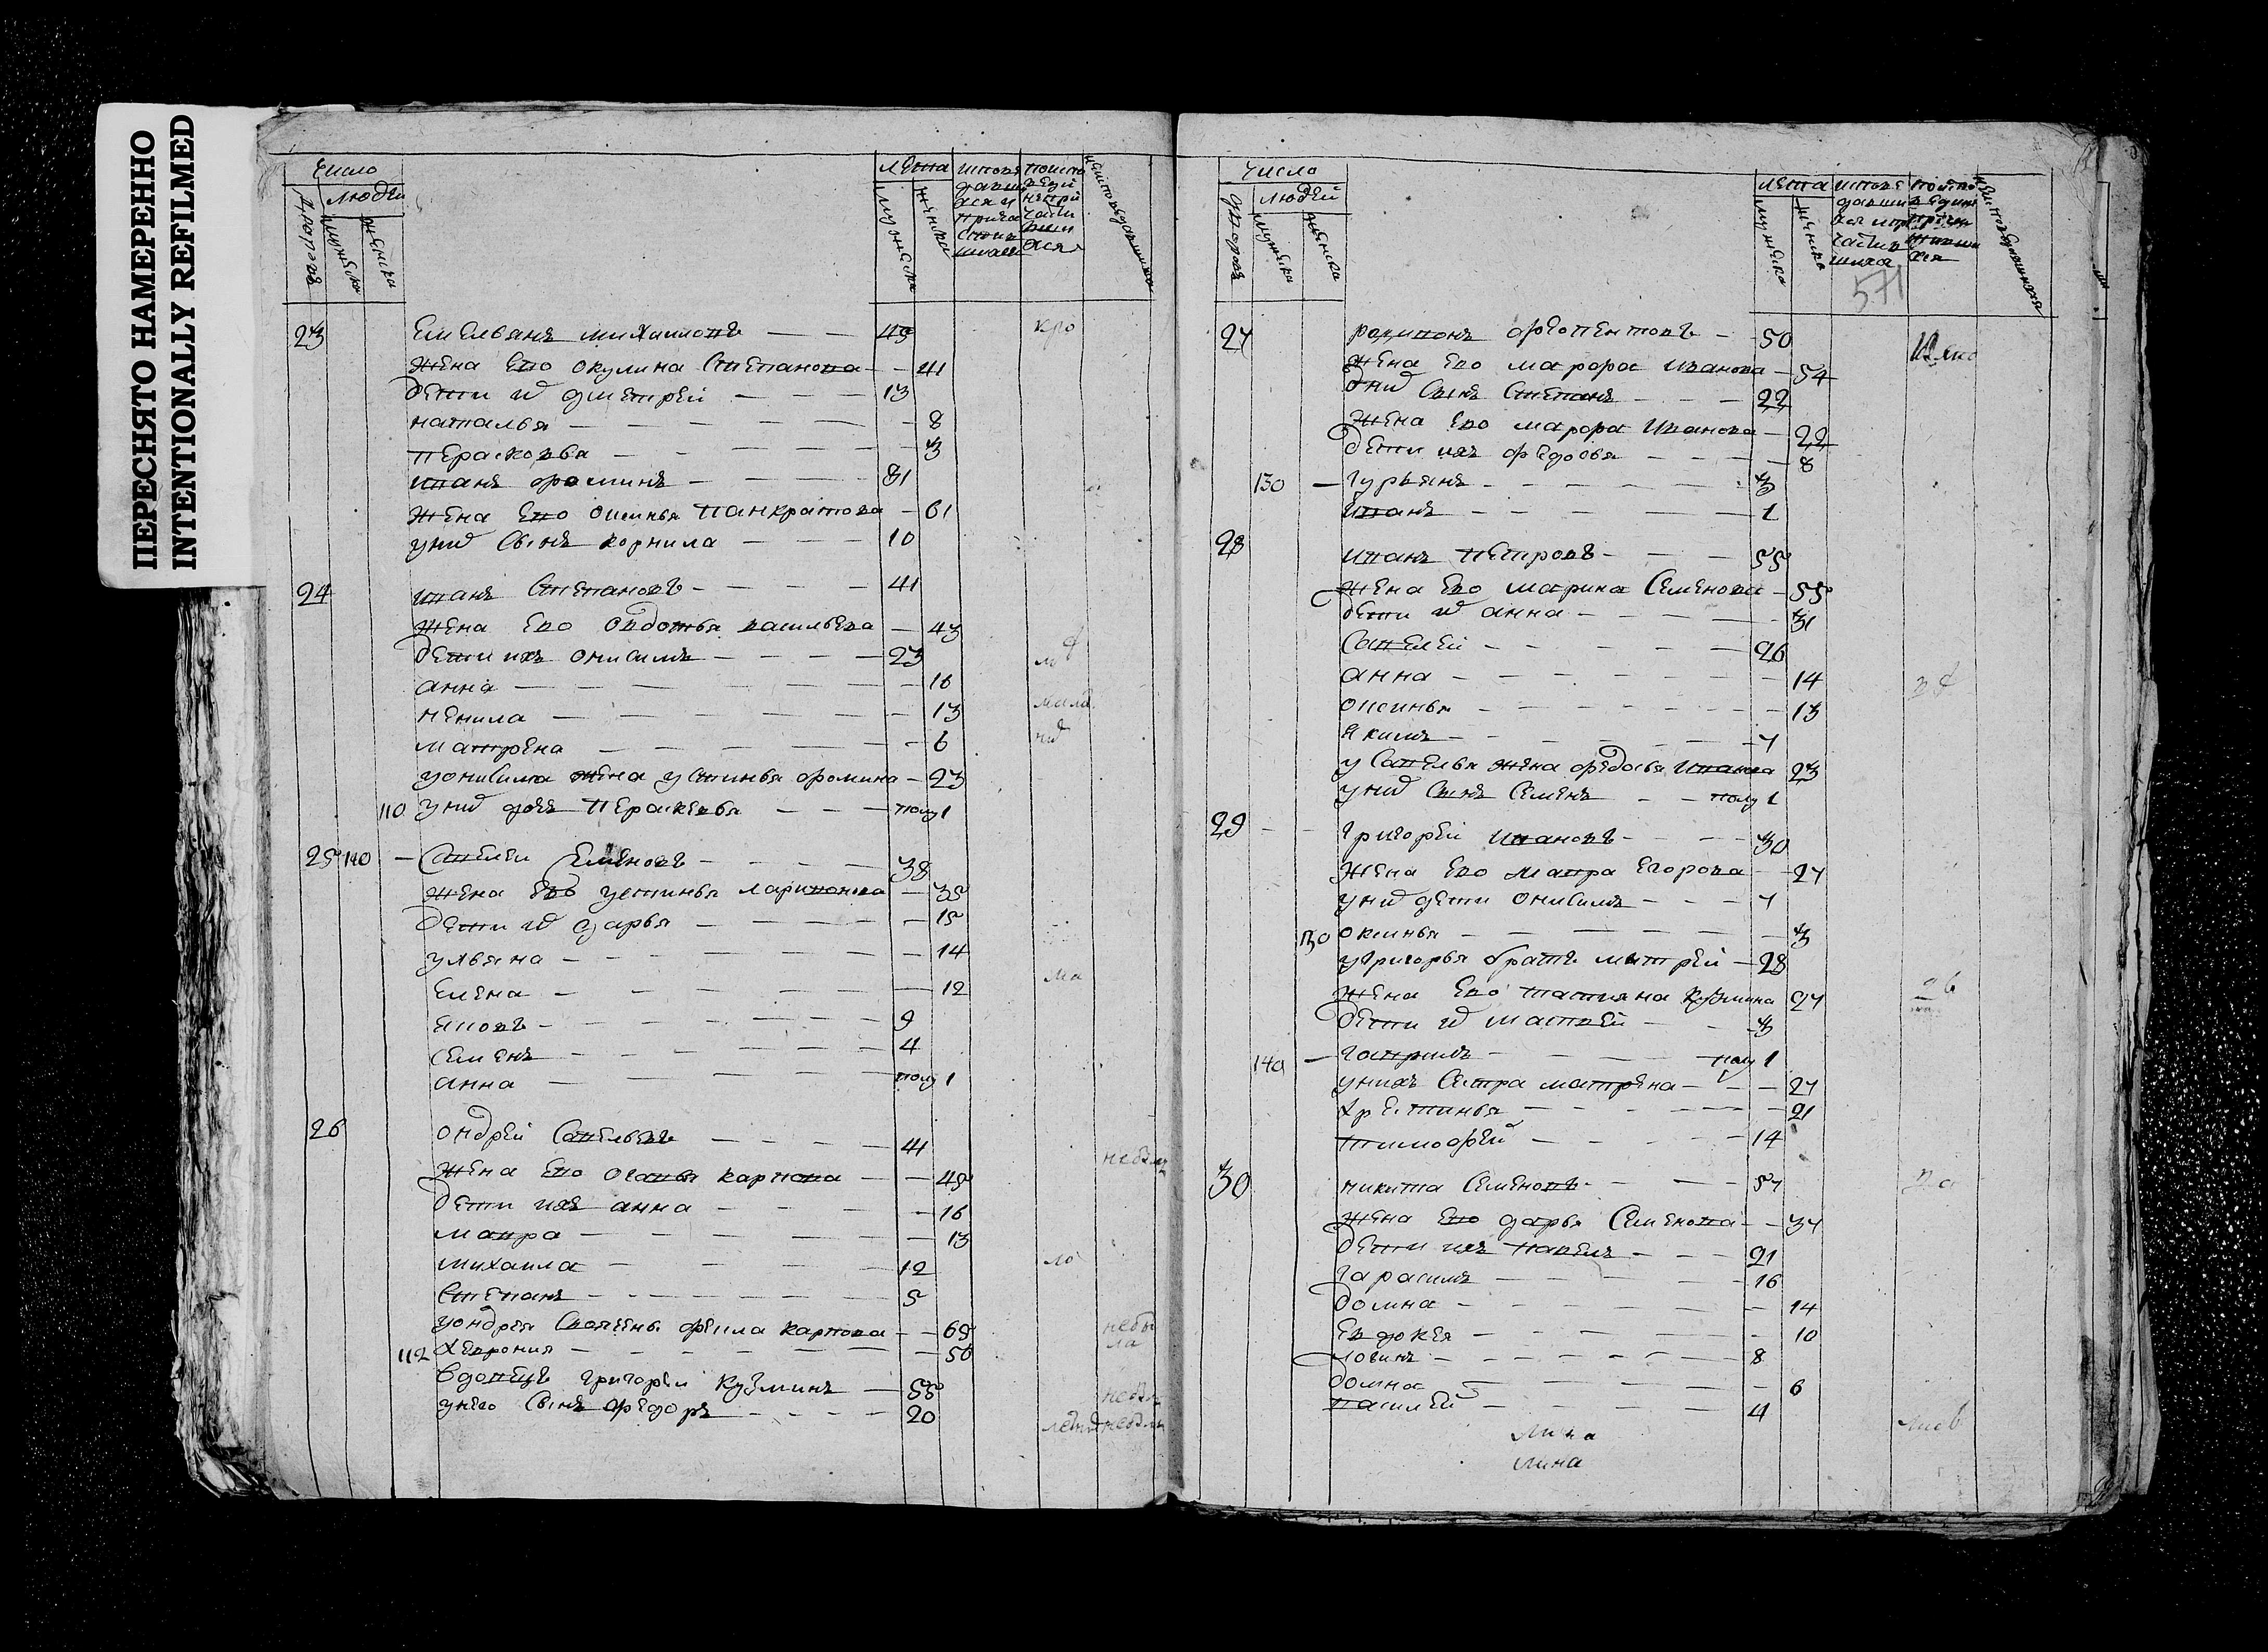 ПЕРЕСНЯТО НАМЕРЕННО
INTENTIONALLY REFILMED
число
людей
дворовъ
мужеска
женска
лѣта
мужеска
женска
23 Емельянъ 49
жена Ево окулина Степанова 41
дети дметрей 13
наталья 8
Пераковья 3
иванъ фоминъ 81
жена Ево оксинья Панкратова 61
сынъ корнила 10
24 иванъ Степановъ 41
жена Ево Овдотья васильева 43
дети ихъ онисимъ 23
анна 16
ненила 13
матрена 6
у онисима жена устинья фомина 23
110 дочь Пераскевья полу 1
25 Савелеи Семеновъ 38
жена Ево устинья ларивонова 35
дети дарья 15
ульяна 14
Елена 12
яковъ 9
Семенъ 4
анна полу 1
26 ондрей Савельевъ 41
жена Ево огафья карпова 45
дети ихъ анна 16
мавра 13
михаила 12
Степанъ 5
у ондрея карпова 65
112 Хеврония 50
вдовецъ григореи Кузминъ 55
у него Сынъ федоръ 20
число
людей
дворовъ
мужеска
женска
лета
мужеска
женска
571
27 родионъ 50
жена Ево марфа иванова 54
Сынъ Степанъ 22
жена Ево марфа иванова 22
дети ихъ федосья 8
130 гурьянъ 3
иванъ 1
28 иванъ Петровъ 55
жена Ево марина Семенова 55
дети анна 31
Савелей 26
анна 14
оксинья 13
якимъ 7
у Савелья жена федосья иванова 23
Сынъ Семенъ полу 1
29 григорей ивановъ 30
жена Ево мавра Егорова 27
дети онисимъ 7
130 оксинья 3
у григорья братъ митрей 28
жена Ево татияна кузмина 27
дети матвей 3
140 гаврилъ полу 1
у нихъ Сестра матрена 27
Хрестинья 21
тимофей 14
30 никита Семеновъ 57
жена Ево дарья Семенова 37
дети ихъ Павелъ 21
гарасимъ 16
домна 14
Евдокея 10
логинъ 8
домна 6
василей 4